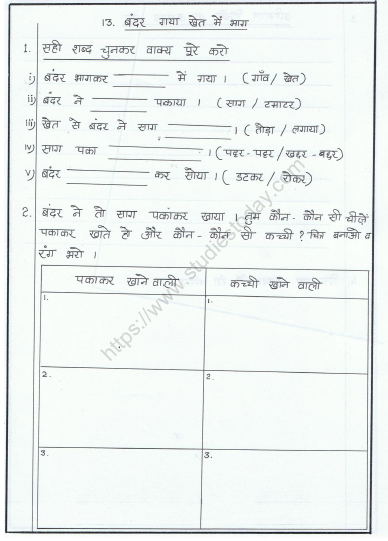 13. बंदर गया खेत में भाग
1. सही शब्द चुनकर वाक्य पूरे करो
i) बंदर भागकर ________ में गया । ( गाँव / खेत )
ii) बंदर ने ________ पकाया । ( साग / टमाटर )
iii) खेत से बंदर ने साग ________ । ( तोड़ा / लगाया )
iv) साग पका ________ । ( पट्टर - पट्टर / खद्दर - बद्दर )
v) बंदर ________ कर सोया । ( डटकर / रोकर )
2. बंदर ने तो साग पकाकर खाया । तुम कौन - कौन सी चीज़ें
पकाकर खाते हो और कौन - कौन सी कच्ची ? चित्र बनाओ व
रंग भरो ।
पकाकर खाने वाली कच्ची खाने वाली
1. 1.
2. 2.
3. 3.
https://www.studiestoday.com